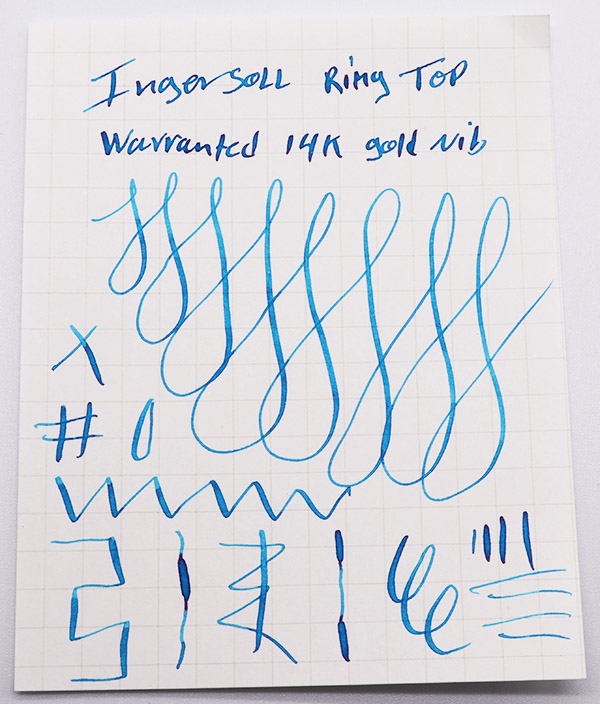 Ingersoll Ring Top
Warranted 14K gold nib
X
# 0